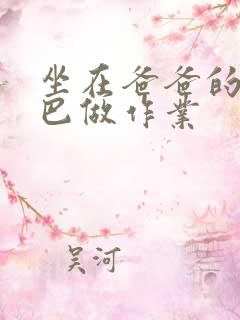 坐在爸爸的
巴做作业
吴河